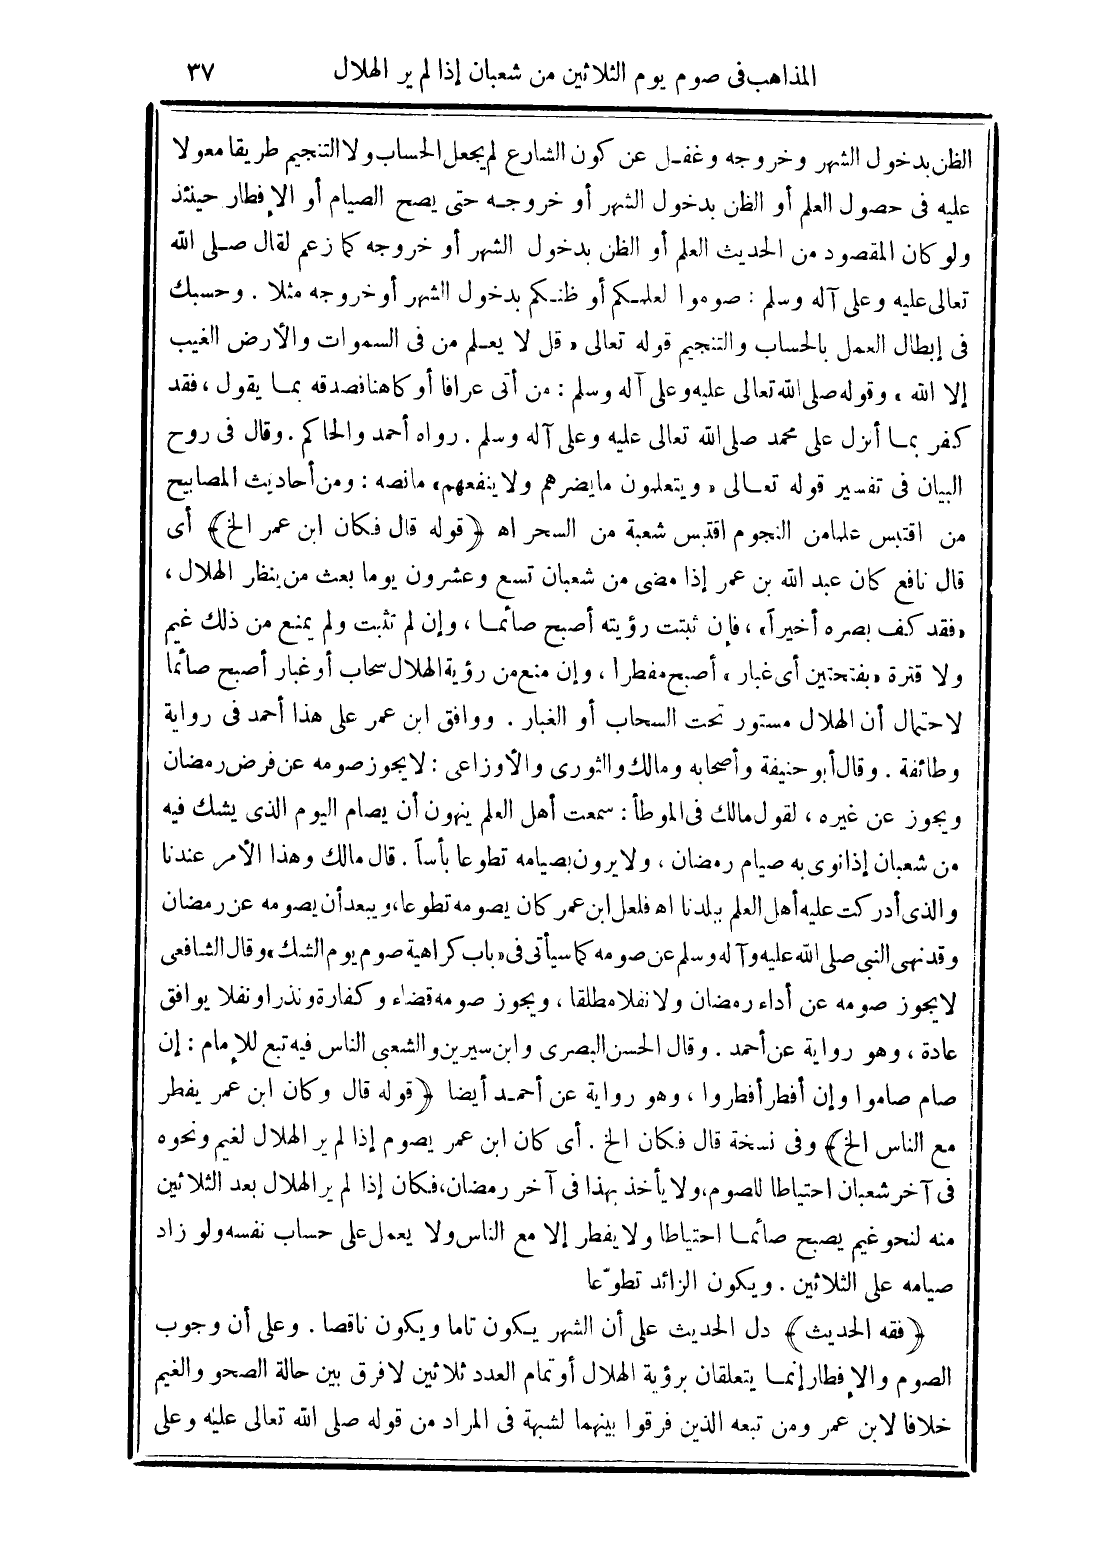 المذاهب فى صوم يوم الثلاثين من شعبان إذا لم ير الهلال ٣٧
الظن بدخول الشهر وخروجه وغفل عن كون الشارع لم يجعل الحساب ولا التنجيم طريقا معولا
عليه فى حصول العلم أو الظن بدخول الشهر أو خروجه حتى يصح الصيام أو الإفطار حينئذ
ولو كان المقصود من الحديث العلم أو الظن بدخول الشهر أو خروجه كما زعم لقال صلى الله
تعالى عليه وعلى آله وسلم : صوموا لعلمكم أو ظنكم بدخول الشهر أو خروجه مثلا . وحسبك
فى إبطال العمل بالحساب والتنجيم قوله تعالى « قل لا يعلم من فى السموات والأرض الغيب
إلا الله » وقوله صلى الله تعالى عليه وعلى آله وسلم : من أتى عرافا أو كاهنا فصدقه بما يقول ، فقد
كفر بما أنزل على محمد صلى الله تعالى عليه وعلى آله وسلم . رواه أحمد والحاكم . وقال فى روح
البيان فى تفسير قوله تعالى « ويتعلمون ما يضرهم ولا ينفعهم » مانصه : ومن أحاديث المصابيح
من اقتبس علما من النجوم اقتبس شعبة من السحر اه ﴿ قوله قال فكان ابن عمر الخ ﴾ أى
قال نافع كان عبد الله بن عمر إذا مضى من شعبان تسع وعشرون يوما بعث من ينظر الهلال ،
« فقد كف بصره أخيراً » ، فإن ثبتت رؤيته أصبح صائما ، وإن لم تثبت ولم يمنع من ذلك غيم
ولا قترة « بفتحتين أى غبار » أصبح مفطرا ، وإن منع من رؤية الهلال سحاب أو غبار أصبح صائما
لاحتمال أن الهلال مستور تحت السحاب أو الغبار . ووافق ابن عمر على هذا أحمد فى رواية
وطائفة . وقال أبو حنيفة وأصحابه ومالك والثورى والأوزاعى : لا يجوز صومه عن فرض رمضان
ويجوز عن غيره ، لقول مالك فى الموطأ : سمعت أهل العلم ينهون أن يصام اليوم الذى يشك فيه
من شعبان إذا نوى به صيام رمضان ، ولا يرون بصيامه تطوعا بأساً . قال مالك وهذا الأمر عندنا
والذى أدركت عليه أهل العلم ببلدنا اه فلعل ابن عمر كان يصومه تطوعا، ويبعد أن يصومه عن رمضان
وقد نهى النبى صلى الله عليه وآله وسلم عن صومه كما سيأتى فى « باب كراهية صوم يوم الشك » وقال الشافعى
لا يجوز صومه عن أداء رمضان ولا نفلا مطلقا ، ويجوز صومه قضاء وكفارة ونذرا ونفلا يوافق
عادة ، وهو رواية عن أحمد . وقال الحسن البصرى وابن سيرين والشعبى الناس فيه تبع للإمام : إن
صام صاموا وإن أفطر أفطروا ، وهو رواية عن أحمد أيضا ﴿ قوله قال وكان ابن عمر يفطر
مع الناس الخ ﴾ وفى نسخة قال فكان الخ . أى كان ابن عمر يصوم إذا لم ير الهلال لغيم ونحوه
فى آخر شعبان احتياطا للصوم، ولا يأخذ بهذا فى آخر رمضان، فكان إذا لم ير الهلال بعد الثلاثين
منه لنحو غيم يصبح صائما احتياطا ولا يفطر إلا مع الناس ولا يعمل على حساب نفسه ولو زاد
صيامه على الثلاثين . ويكون الزائد تطوّعا
﴿ فقه الحديث ﴾ دل الحديث على أن الشهر يكون تاما ويكون ناقصا . وعلى أن وجوب
الصوم والإفطار إنما يتعلقان برؤية الهلال أو تمام العدد ثلاثين لافرق بين حالة الصحو والغيم
خلافا لابن عمر ومن تبعه الذين فرقوا بينهما لشبهة فى المراد من قوله صلى الله تعالى عليه وعلى